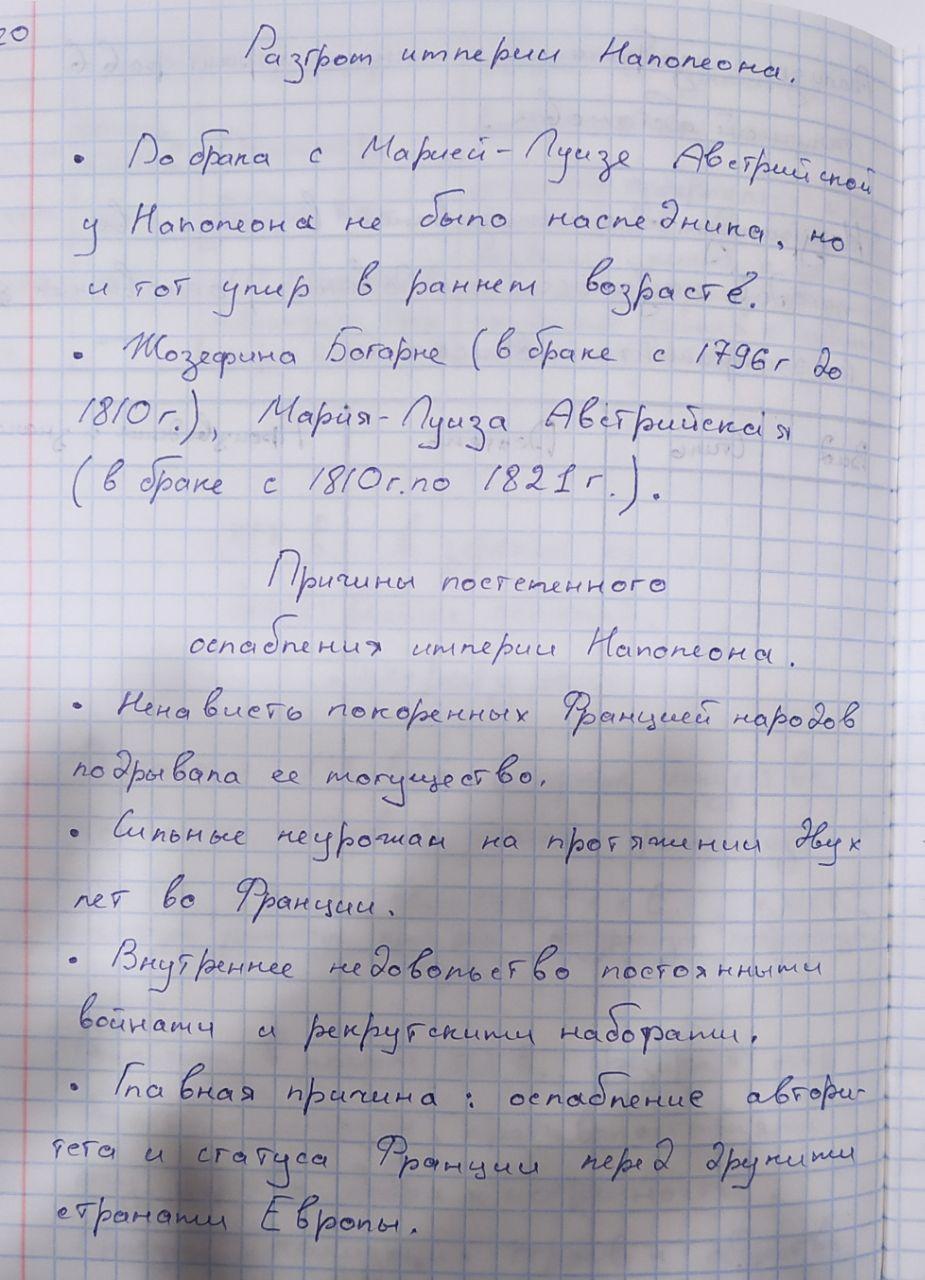 20
Разгром империи Наполеона.
• До брака с Марией-Луизе Австрийской
у Наполеона не было наследника, но
и тот умир в раннем возрасте.
• Жозефина Богарне (в браке с 1796г до
1810г.), Мария-Луиза Австрийская
(в браке с 1810г.по 1821г.).
Причины постепенного
ослабления империи Наполеона.
• Ненависть покоренных Францией народов
подрывала ее могущество.
• Сильные неурожаи на протяжении двух
лет во Франции.
• Внутреннее недовольство постоянными
войнами и рекрутскими наборами.
• Главная причина: ослабление автори-
тета и статуса Франции перед другими
странами Европы.